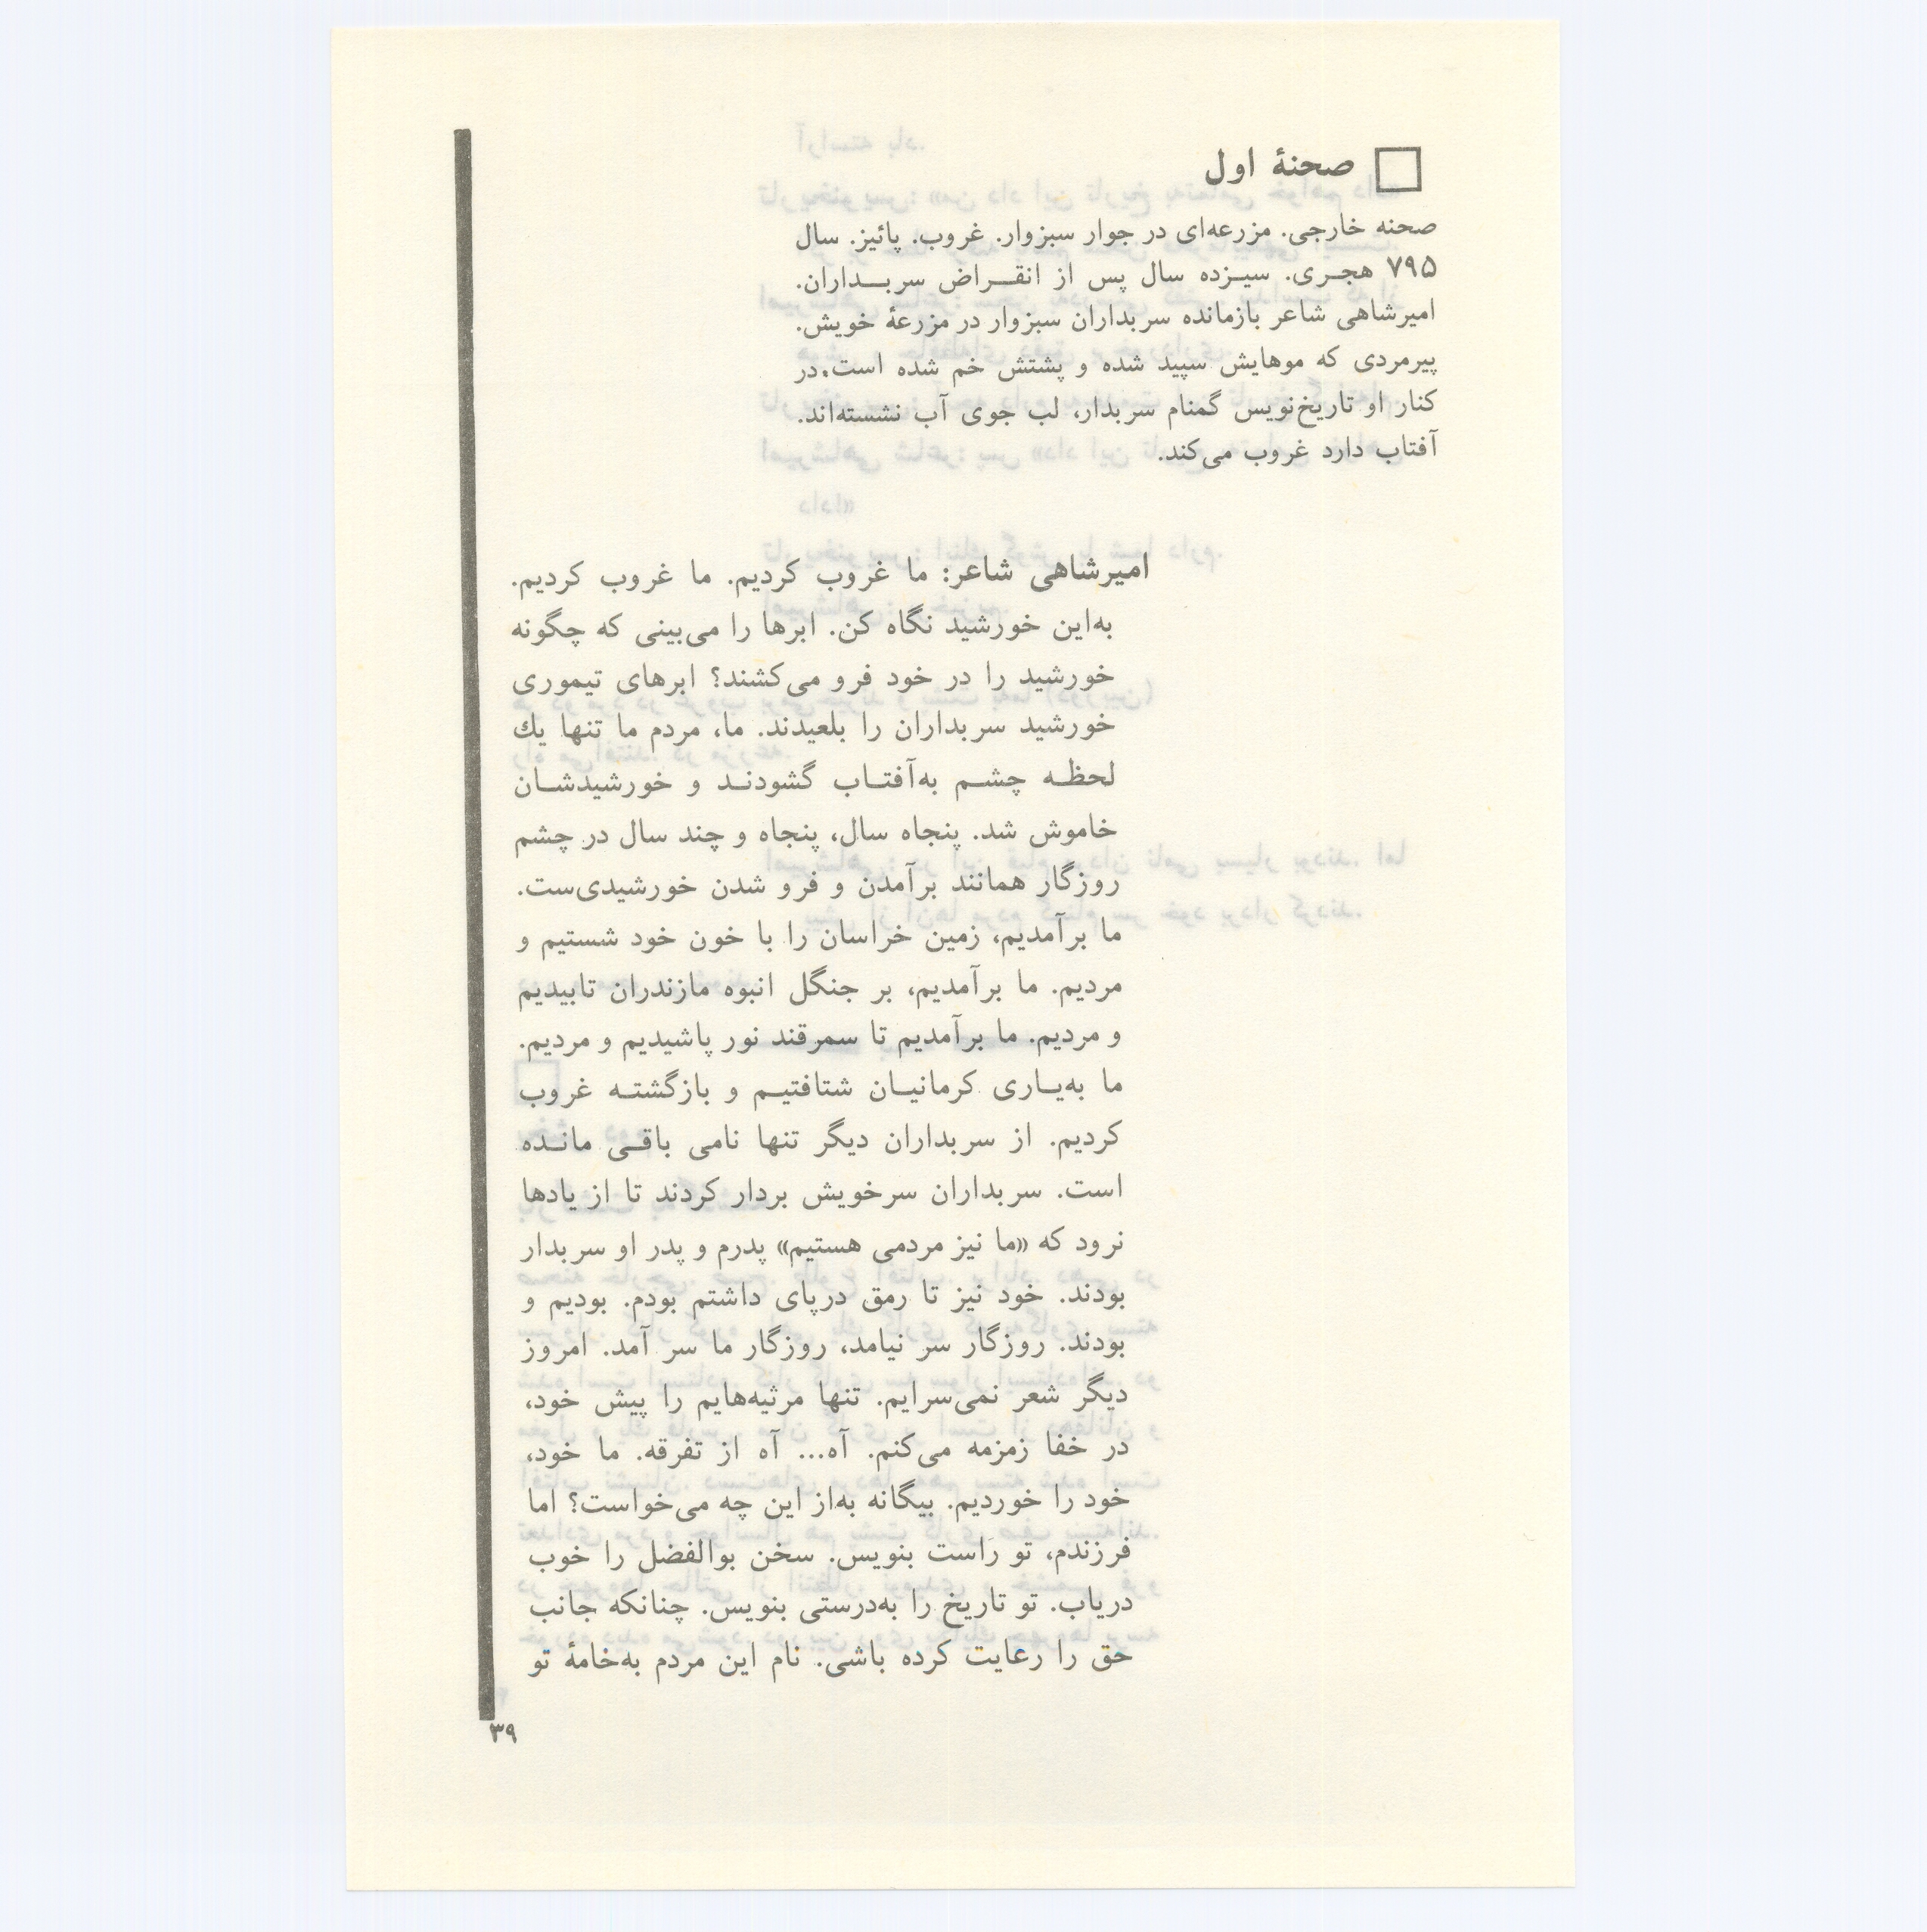 صحنهٔ اول
صحنه خارجی. مزرعه‌ای در جوار سبزوار. غروب. پائیز. سال
۷۹۵ هجری. سیزده سال پس از انقراض سربداران.
امیرشاهی شاعر بازمانده سربداران سبزوار در مزرعهٔ خویش.
پیرمردی که موهایش سپید شده و پشتش خم شده است، در
کنار او تاریخ‌نویس گمنام سربدار، لب جوی آب نشسته‌اند.
آفتاب دارد غروب می‌کند.
امیرشاهی شاعر: ما غروب کردیم. ما غروب کردیم.
به‌این خورشید نگاه کن. ابرها را می‌بینی که چگونه
خورشید را در خود فرو می‌کشند؟ ابرهای تیموری
خورشید سربداران را بلعیدند. ما، مردم ما تنها یك
لحظه چشم به‌آفتاب گشودند و خورشیدشان
خاموش شد. پنجاه سال، پنجاه و چند سال در چشم
روزگار همانند برآمدن و فرو شدن خورشیدی‌ست.
ما برآمدیم، زمین خراسان را با خون خود شستیم و
مردیم. ما برآمدیم، بر جنگل انبوه مازندران تابیدیم
و مردیم. ما برآمدیم تا سمرقند نور پاشیدیم و مردیم.
ما به‌یاری کرمانیان شتافتیم و بازگشته غروب
کردیم. از سربداران دیگر تنها نامی باقی مانده
است. سربداران سرخویش بردار کردند تا از یادها
نرود که «ما نیز مردمی هستیم» پدرم و پدر او سربدار
بودند. خود نیز تا رمق درپای داشتم بودم. بودیم و
بودند. روزگار سر نیامد، روزگار ما سر آمد. امروز
دیگر شعر نمی‌سرایم. تنها مرثیه‌هایم را پیش خود،
در خفا زمزمه می‌کنم. آه... آه از تفرقه. ما خود،
خود را خوردیم. بیگانه به‌از این چه می‌خواست؟ اما
فرزندم، تو راست بنویس. سخن بوالفضل را خوب
دریاب. تو تاریخ را به‌درستی بنویس. چنانکه جانب
حق را رعایت کرده باشی. نام این مردم به‌خامهٔ تو
۳۹